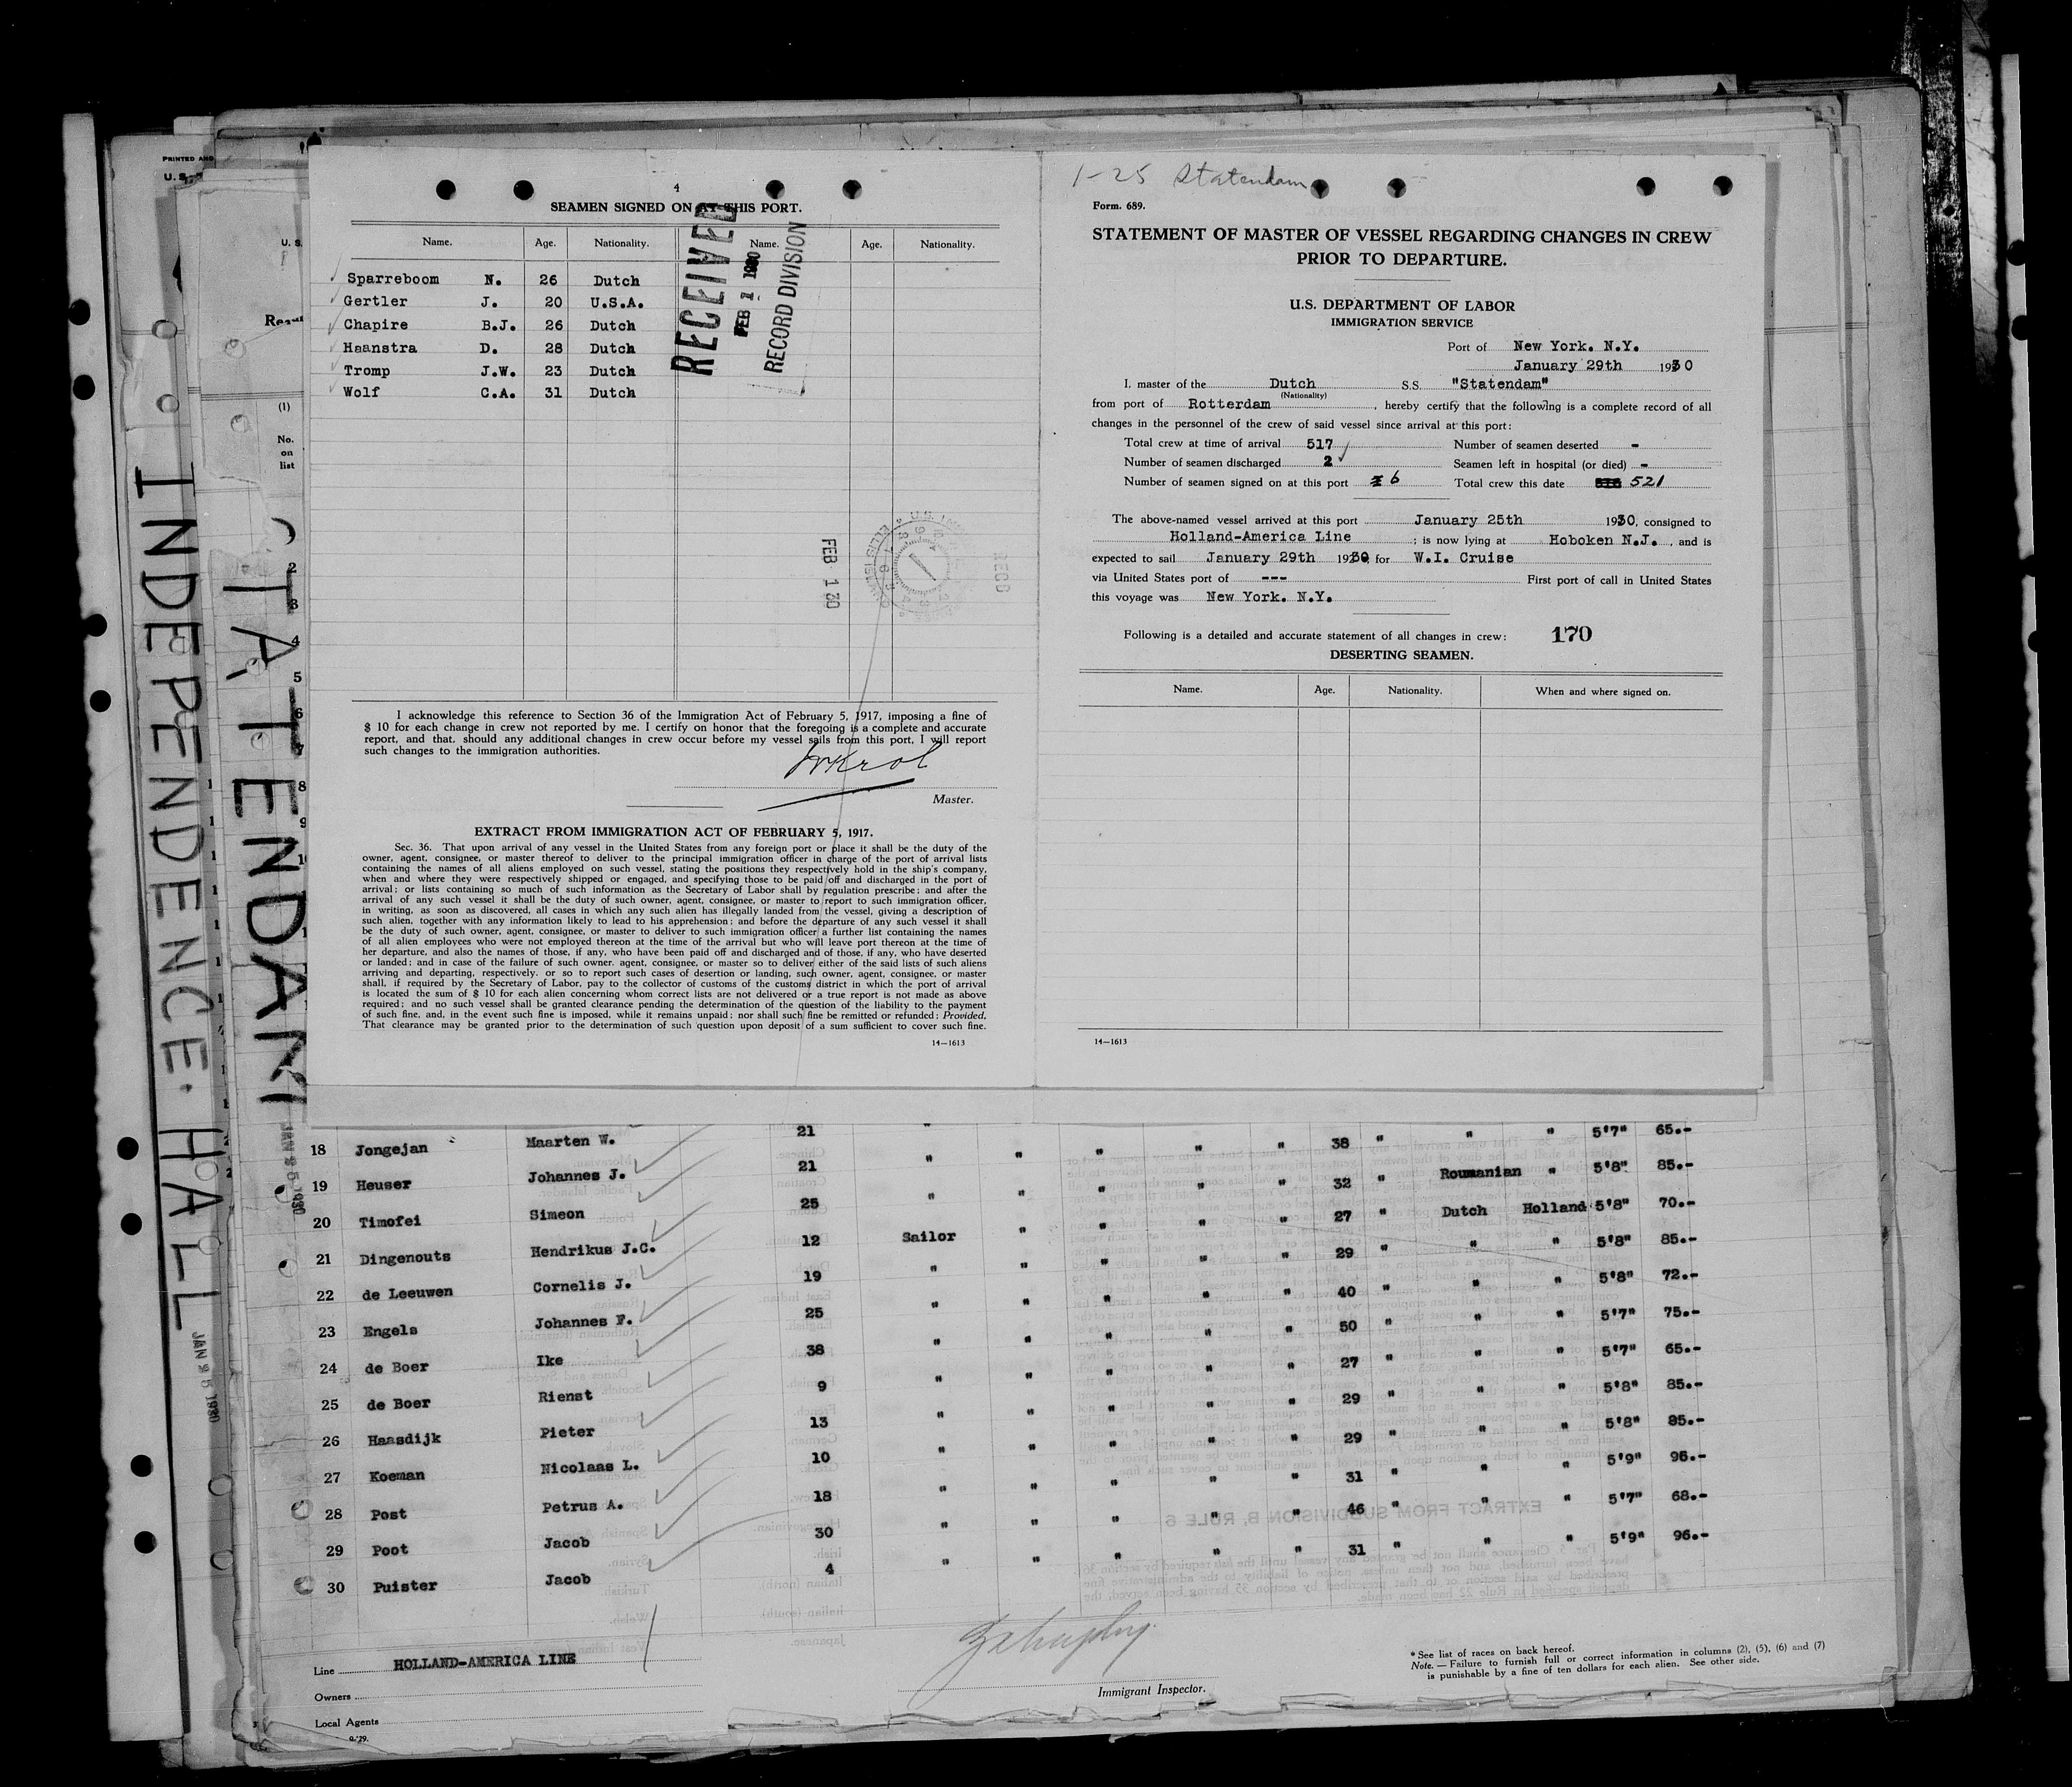 PRINTED AND
U. S.
U. S.
(1)
No.
on
list
2
3
4
5
6
7
8
9
INDEPENDENCE HALL
STATENDAM
JAN 25 1930
JAN 25 1930
4
SEAMEN SIGNED ON AT THIS PORT.
Name. Age. Nationality. Name. Age. Nationality.
Sparreboom N. 26 Dutch
Gertler J. 20 U.S.A.
Chapire B.J. 26 Dutch
Haanstra D. 28 Dutch
Tromp J.W. 23 Dutch
Wolf C.A. 31 Dutch
RECEIVED
FEB 1 1930
RECORD DIVISION
FEB 1 30
I acknowledge this reference to Section 36 of the Immigration Act of February 5, 1917, imposing a fine of
$ 10 for each change in crew not reported by me. I certify on honor that the foregoing is a complete and accurate
report, and that, should any additional changes in crew occur before my vessel sails from this port, I will report
such changes to the immigration authorities.
Krol
Master.
EXTRACT FROM IMMIGRATION ACT OF FEBRUARY 5, 1917.
Sec. 36. That upon arrival of any vessel in the United States from any foreign port or place it shall be the duty of the
owner, agent, consignee, or master thereof to deliver to the principal immigration officer in charge of the port of arrival lists
containing the names of all aliens employed on such vessel, stating the positions they respectively hold in the ship's company,
when and where they were respectively shipped or engaged, and specifying those to be paid off and discharged in the port of
arrival; or lists containing so much of such information as the Secretary of Labor shall by regulation prescribe; and after the
arrival of any such vessel it shall be the duty of such owner, agent, consignee, or master to report to such immigration officer,
in writing, as soon as discovered, all cases in which any such alien has illegally landed from the vessel, giving a description of
such alien, together with any information likely to lead to his apprehension; and before the departure of any such vessel it shall
be the duty of such owner, agent, consignee, or master to deliver to such immigration officer a further list containing the names
of all alien employees who were not employed thereon at the time of the arrival but who will leave port thereon at the time of
her departure, and also the names of those, if any, who have been paid off and discharged and of those, if any, who have deserted
or landed; and in case of the failure of such owner. agent, consignee, or master so to deliver either of the said lists of such aliens
arriving and departing, respectively. or so to report such cases of desertion or landing, such owner, agent, consignee, or master
shall, if required by the Secretary of Labor, pay to the collector of customs of the customs district in which the port of arrival
is located the sum of $ 10 for each alien concerning whom correct lists are not delivered or a true report is not made as above
required; and no such vessel shall be granted clearance pending the determination of the question of the liability to the payment
of such fine, and, in the event such fine is imposed, while it remains unpaid; nor shall such fine be remitted or refunded: Provided,
That clearance may be granted prior to the determination of such question upon deposit of a sum sufficient to cover such fine.
14—1613
1-25 Statendam
Form. 689.
STATEMENT OF MASTER OF VESSEL REGARDING CHANGES IN CREW
PRIOR TO DEPARTURE.
U.S. DEPARTMENT OF LABOR
IMMIGRATION SERVICE
Port of New York. N.Y.
January 29th 1930
I, master of the Dutch S.S. "Statendam"
(Nationality)
from port of Rotterdam, hereby certify that the following is a complete record of all
changes in the personnel of the crew of said vessel since arrival at this port:
Total crew at time of arrival 517 Number of seamen deserted -
Number of seamen discharged 2 Seamen left in hospital (or died) -
Number of seamen signed on at this port 6 Total crew this date 521
The above-named vessel arrived at this port January 25th 1930, consigned to
Holland-America Line ; is now lying at Hoboken N.J., and is
expected to sail January 29th 1930, for W.I. Cruise
via United States port of --- First port of call in United States
this voyage was New York. N.Y.
Following is a detailed and accurate statement of all changes in crew: 170
DESERTING SEAMEN.
Name. Age. Nationality. When and where signed on.
14—1613
18 Jongejan Maarten W. 21 " " " " 38 " " " 5'7" 65.-
19 Heuser Johannes J. 21 " " " " " 32 " Roumanian " 5'8" 85.-
20 Timofei Simeon 25 " " " " " 27 " Dutch Holland 5'8" 70.-
21 Dingenouts Hendrikus J.C. 12 Sailor " " " " 29 " " " 5'8" 85.-
22 de Leeuwen Cornelis J. 19 " " " " " 40 " " " 5'8" 72.-
23 Engels Johannes F. 25 " " " " " 50 " " " 5'7" 75.-
24 de Boer Ike 38 " " " " " 27 " " " 5'7" 65.-
25 de Boer Rienst 9 " " " " " 29 " " " 5'8" 85.-
26 Haasdijk Pieter 13 " " " " " 29 " " " 5'8" 85.-
27 Koeman Nicolaas L. 10 " " " " " 31 " " " 5'9" 96.-
28 Post Petrus A. 18 " " " " " 46 " " " 5'7" 68.-
29 Poot Jacob 30 " " " " " 31 " " " 5'9" 96.-
30 Puister Jacob 4 " " "
Line HOLLAND-AMERICA LINE
Owners
Local Agents
Immigrant Inspector.
* See list of races on back hereof.
Note. — Failure to furnish full or correct information in columns (2), (5), (6) and (7)
is punishable by a fine of ten dollars for each alien. See other side.